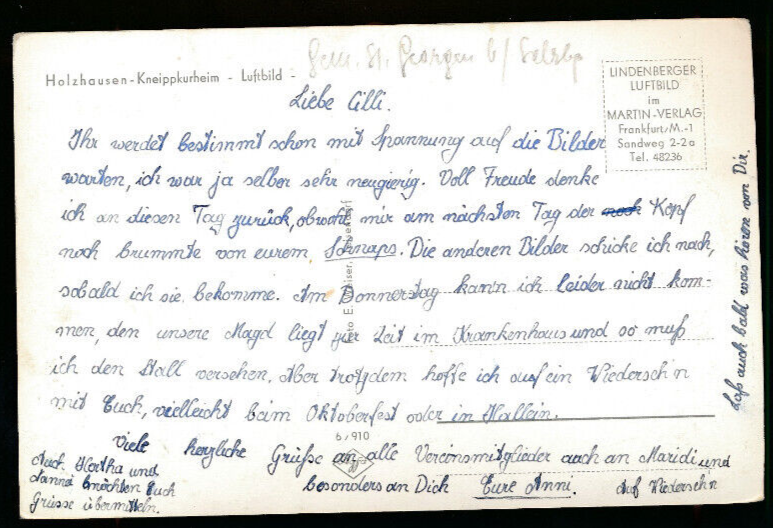 Gem. St. Georgen b/ Salzbg
Holzhausen-Kneippkurheim - Luftbild -
LINDENBERGER
LUFTBILD
im
MARTIN-VERLAG
Frankfurt/M.-1
Sandweg 2-2a
Tel. 48236
Liebe Cilli.
Ihr werdet bestimmt schon mit Spannung auf die Bilder
warten, ich war ja selber sehr neugierig. Voll Freude denke
ich an diesen Tag zurück, obwohl mir am nächsten Tag der noch Kopf
noch brummte von eurem Schnaps. Die anderen Bilder schicke ich nach,
sobald ich sie bekomme. Am Donnerstag kann ich leider nicht kom-
men, den unsere Magd liegt zur Zeit im Krankenhaus und so muß
ich den Stall versehen. Aber trotzdem hoffe ich auf ein Wiedersehn
mit Euch, vielleicht beim Oktoberfest oder in Hallein.
6/910
Viele herzliche Grüße an alle Vereinsmitglieder auch an Maridi und
besonders an Dich Eure Anni. Auf Wiedersehn
Auch Hertha und
Hanna möchten Euch
Grüsse übermitteln.
Laß auch bald was hören von Dir.